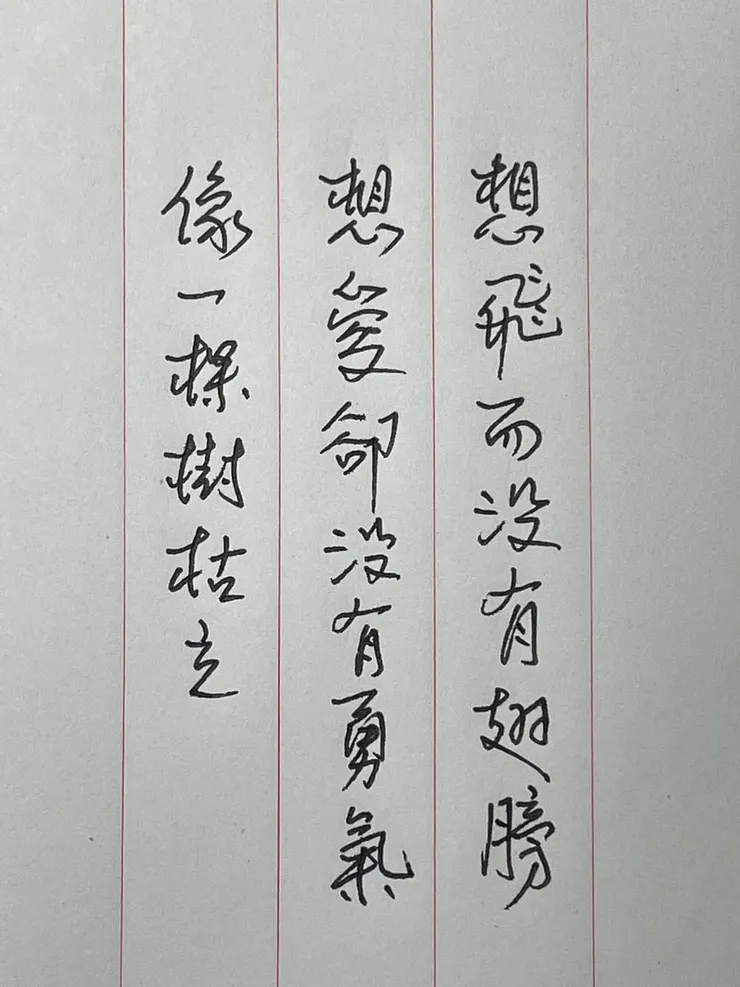 想飛而没有翅膀
想愛卻没有勇氣
像一棵樹枯立